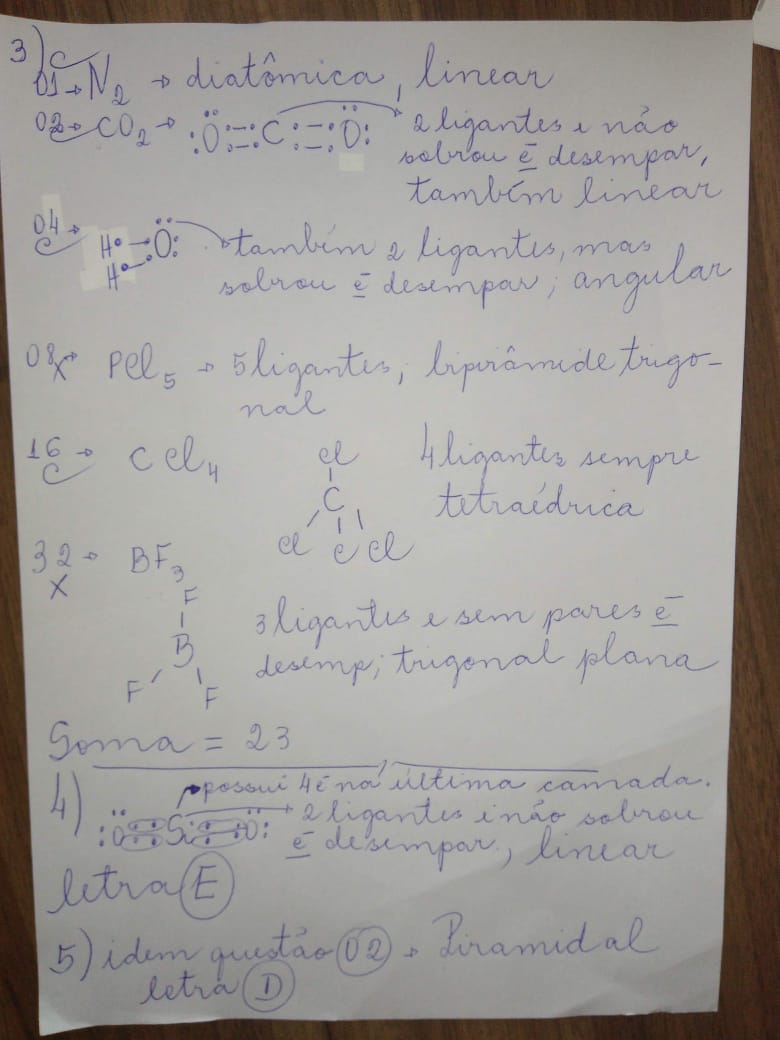 3) C
01→ N2 → diatômica, linear
02→ CO2 → :Ö::C::Ö: 2 ligantes e não
C sobrou ē desempar,
também linear
04→ H•–Ö: também 2 ligantes, mas
C H• sobrou ē desempar; angular
08→ PCl5 → 5 ligantes, bipirâmide trigo-
X nal
16→ CCl4 Cl 4 ligantes sempre
C C tetraédrica
Cl C Cl
32→ BF3
X F 3 ligantes e sem pares ē
B desemp; trigonal plana
F F
Soma = 23
4) possui 4ē na última camada.
:Ö::Si::Ö: 2 ligantes e não sobrou
ē desempar., linear
letra E
5) idem questão 02 → Piramidal
letra D